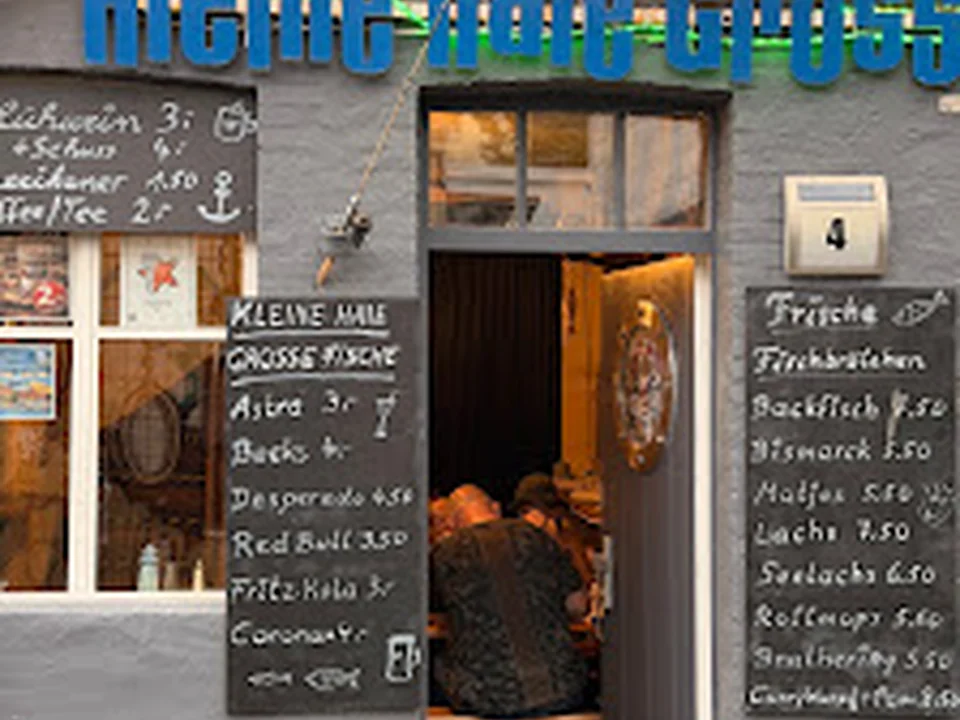 kleine Haie Gross
Glühwein 3,-
+Schuss 4,-
ffee/Tee 2,-
4
KLEINE HAIE
GROSSE FISCHE
Astra 3,-
Becks 4,-
Desperado 4,50
Red Bull 3,50
Fritz-Kola 3,-
Corona 4,-
Frische
Fischbrötchen
Backfisch 7.50
Bismarck 5.50
Matjes 5.50
Lachs 7.50
Seelachs 6.50
Rollmops 5.50
Brathering 5.50